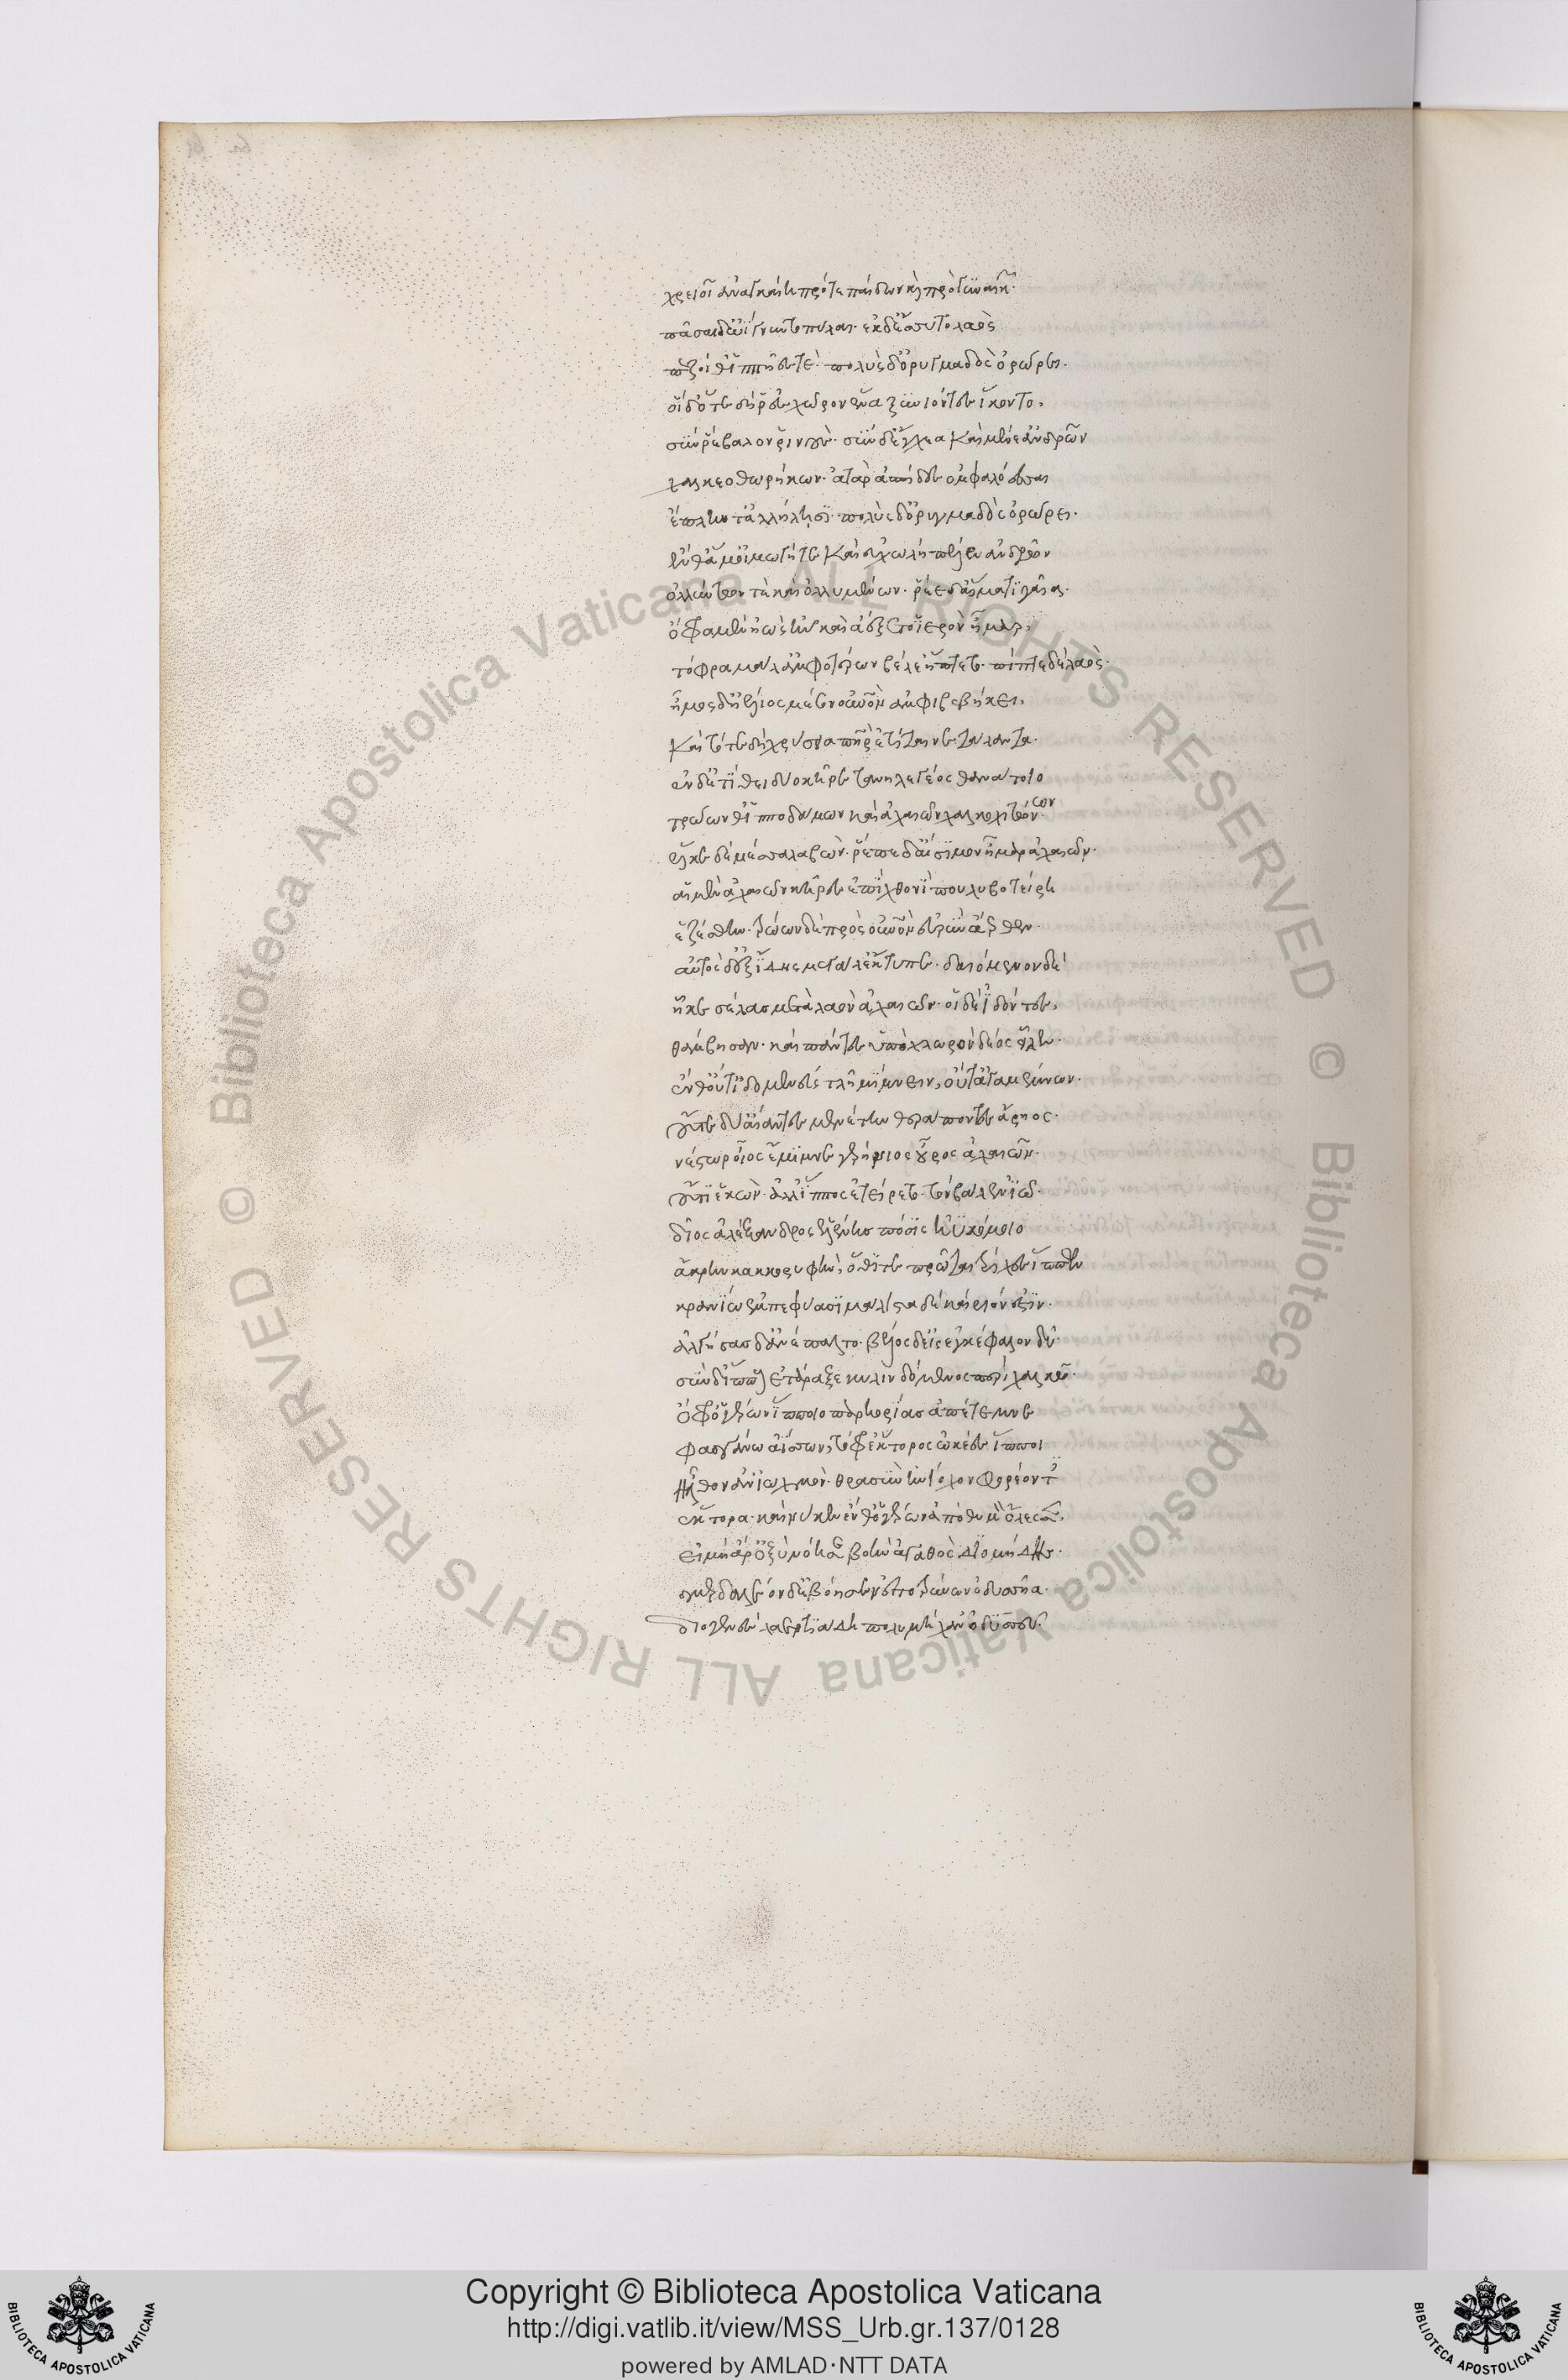 χρειοῖ ἀναγκαίη πρό τε παίδων καὶ πρὸ γυναικῶν·
πᾶσαι δ' ὠΐγνυντο πύλαι· ἐκ δ' ἔσσυτο λαὸς
πεζοί θ' ἱππῆές τε· πολὺς δ' ὀρυμαγδὸς ὀρώρει·
οἱ δ' ὅτε δή ῥ' ἐς χῶρον ἕνα ξυνιόντες ἵκοντο,
σύν ῥ' ἔβαλον ῥινούς· σὺν δ' ἔγχεα καὶ μένε' ἀνδρῶν
χαλκεοθωρήκων· ἀτὰρ ἀσπίδες ὀμφαλόεσσαι
ἔπληντ' ἀλλήλησι· πολὺς δ' ὀρυμαγδὸς ὀρώρει·
ἔνθα δ' ἅμ' οἰμωγή τε καὶ εὐχωλὴ πέλεν ἀνδρῶν
ὀλλύντων τὲ καὶ ὀλλυμένων· ῥέε δ' αἵματι γαῖα·
ὄφρα μὲν ἠὼς ἦν καὶ ἀέξετο ἱερὸν ἦμαρ,
τόφρα μάλ' ἀμφοτέρων βέλε' ἥπτετο· πίπτε δὲ λαὸς·
ἦμος δ' ἠέλιος μέσον οὐρανὸν ἀμφιβεβήκει,
καὶ τότε δὴ χρύσεια πατὴρ ἐτίταινε τάλαντα·
ἐν δ' ἐτίθει δύο κῆρε τανηλεγέος θανάτοιο
τρώων θ' ἱπποδάμων καὶ ἀχαιῶν χαλκοχιτώνων·
ἕλκε δὲ μέσσα λαβών· ῥέπε δ' αἴσιμον ἦμαρ ἀχαιῶν·
αἱ μὲν ἀχαιῶν κῆρες ἐπὶ χθονὶ πουλυβοτείρη
ἑζέσθην· τρώων δὲ πρὸς οὐρανὸν εὐρὺν ἄερθεν·
αὐτὸς δ' ἐξ ἴδης μεγάλ' ἔκτυπε· δαιόμενον δὲ
ἧκε σέλας μετὰ λαὸν ἀχαιῶν· οἱ δὲ ἰδόντες,
θάμβησαν· καὶ πάντας ὑπὸ χλωρὸν δέος εἷλεν·
ἔνθ' οὔτ' ἰδομενεὺς τλῆ μίμνειν, οὔτ' ἀγαμέμνων·
οὔτε δύ' αἴαντες μενέτην θεράποντες ἄρηος·
νέστωρ οἶος ἔμιμνε γερήνιος οὖρος ἀχαιῶν·
οὔτι ἑκὼν· ἀλλ' ἵππος ἐτείρετο· τὸν βάλεν ἰῶ·
δῖος ἀλέξανδρος ἑλένης πόσις ἠϋκόμοιο
ἄκρην κακκορυφήν, ὅθι τε πρῶται τρίχες ἵππων
κρανίω ἐμπεφύασι μάλιστα δὲ καίριόν ἐστιν·
ἀλγήσας δ' ἀνέπαλτο· βέλος δ' εἰς ἐγκέφαλον δῦ·
σὺν δ' ἵππους ἐτάραξε κυλινδόμενος περὶ χαλκῶ·
ὄφρ' ὁ γέρων ἵπποιο παρηορίας ἀπέταμνε
φασγάνω ἀΐσσων, τόφρ' ἕκτορος ὠκέες ἵπποι
ἦλθον ἀν' ἰωχμὸν· θρασὺν ἡνίοχον φορέοντες
ἕκτορα· καί νύ κεν ἔνθ' ὁ γέρων ἀπὸ θυμὸν ὄλεσσεν,
εἰ μὴ ἄρ' ὀξὺ νόησε βοὴν ἀγαθὸς διομήδης·
σμερδαλέον δ' ἐβόησεν ἐποτρύνων ὀδυσῆα·
διογενὲς λαερτιάδη πολυμήχαν' ὀδυσσεῦ·
Copyright © Biblioteca Apostolica Vaticana
http://digi.vatlib.it/view/MSS_Urb.gr.137/0128
powered by AMLAD·NTT DATA